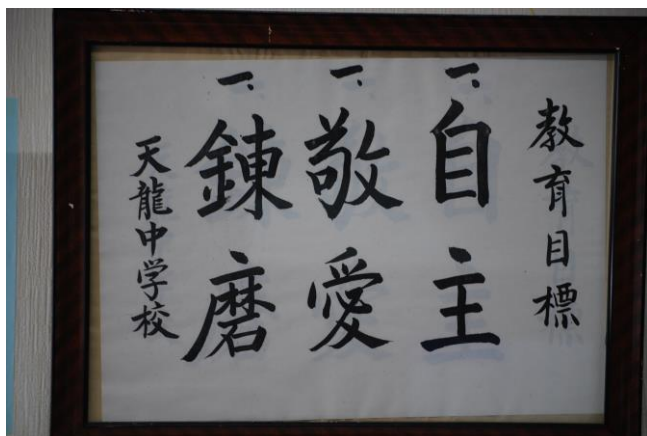 教育目標
一、自主
一、敬愛
一、錬磨
天龍中学校